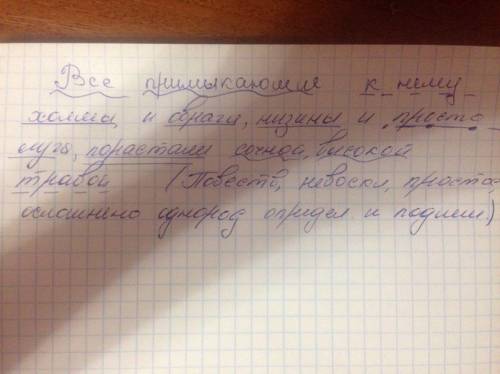 Все примыкающие к нему
холмы и овраги, низины и просто
луга, порастали сочной, высокой
травой (Повеств, невоскл, проста
осложнено однород определ и подлеж)